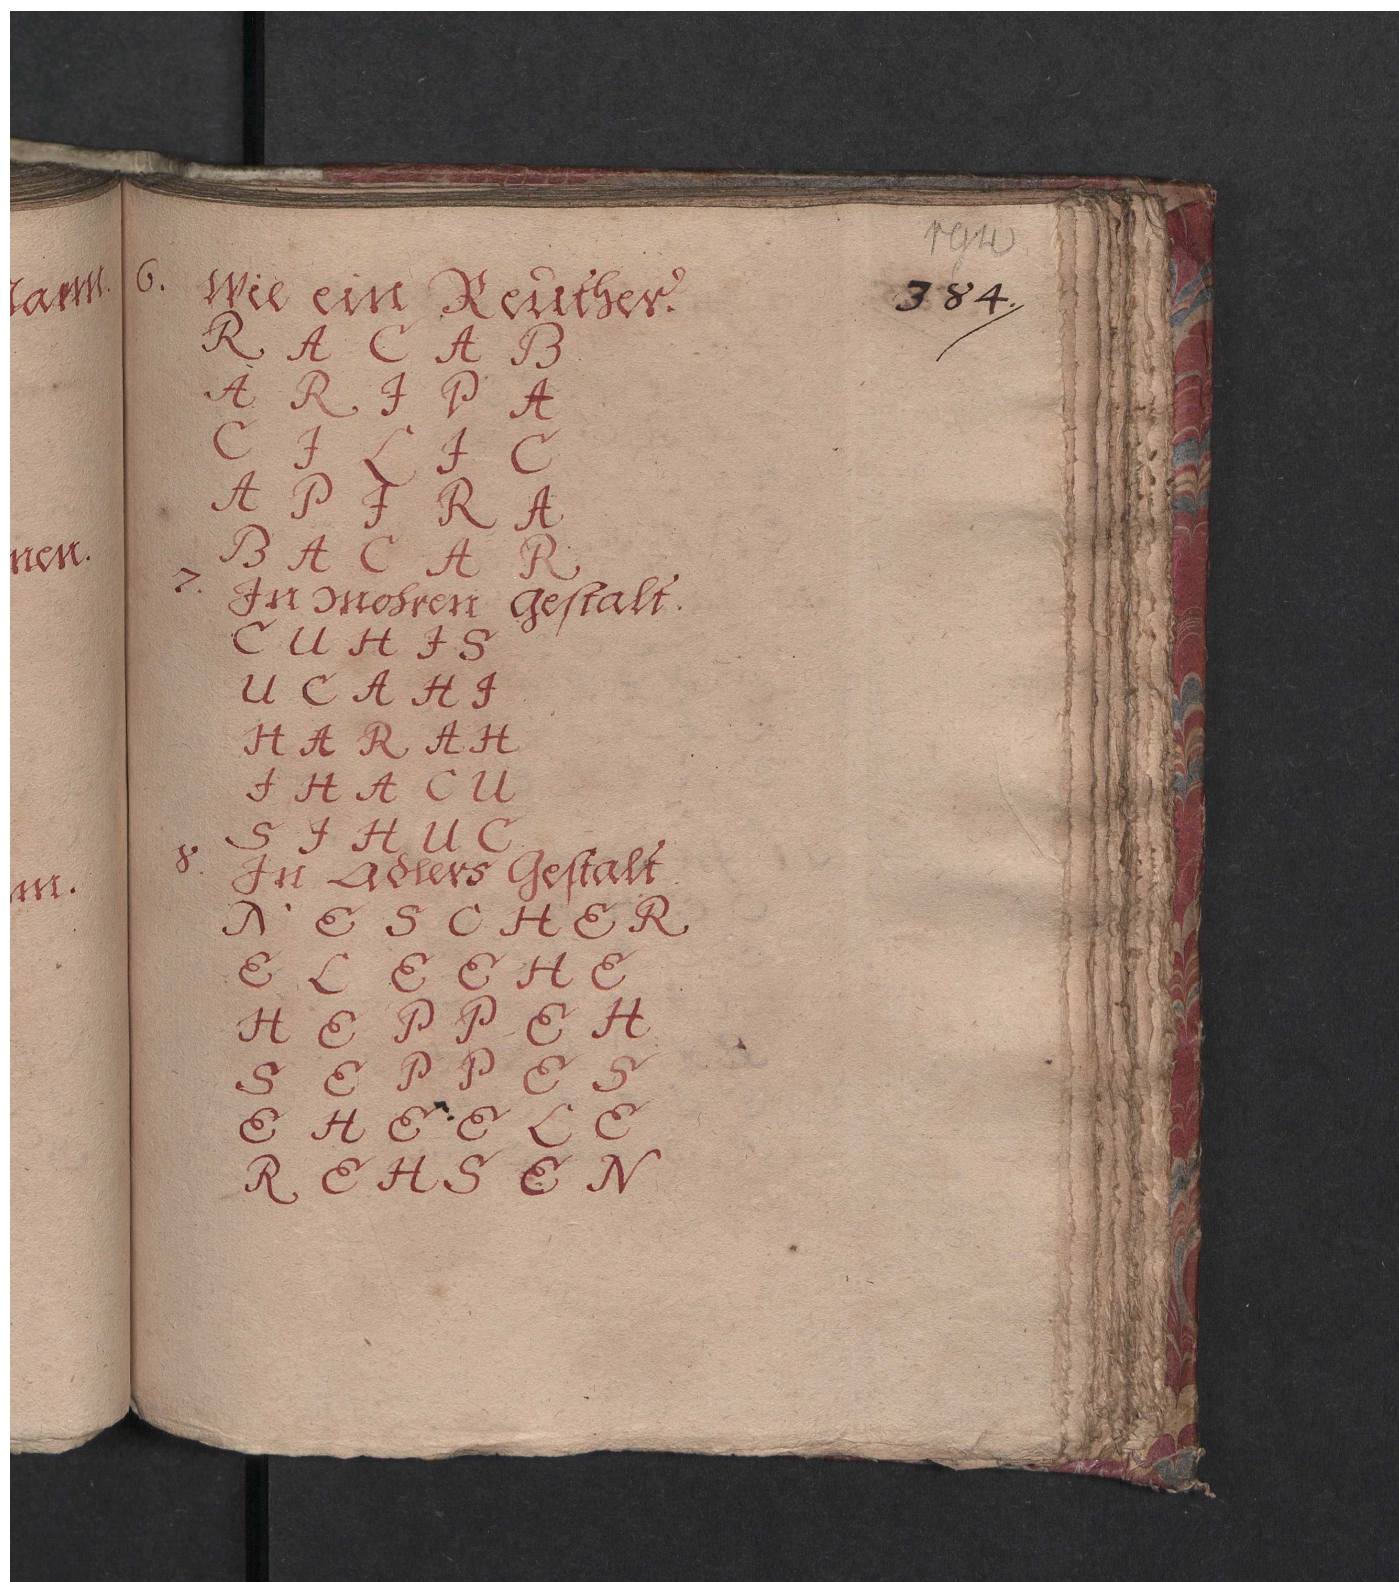 384.
6. Wie ein Reuther.
R A C A B
A R I P A
C I L I C
A P I R A
B A C A R
7. In Mohren gestalt.
C U H I S
U C A H I
H A R A H
I H A C U
S I H U C
8. In Adlers Gestalt
N E S C H E R
E L E E H E
H E P P E H
S E P P E S
E H E E L E
R E H S E N
nen.